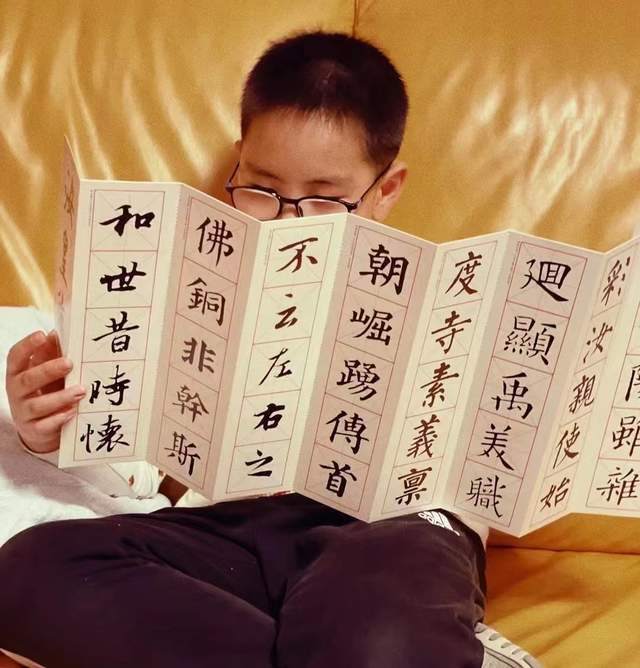 和世昔時懷
佛銅非幹斯
不云左右之
朝崛踴傳首
度寺素義稟
迴顯禹美職
彩汝親使始
雖雜